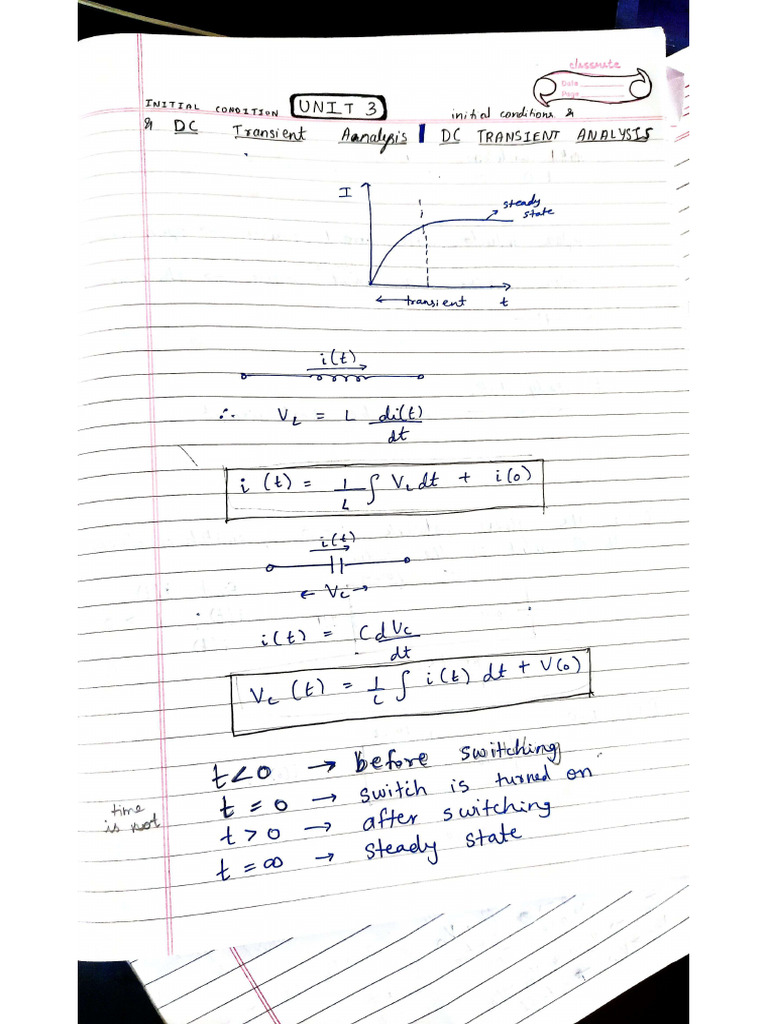 classmate
Date
Page
INITIAL CONDITION UNIT 3 initial conditions &
& DC Transient Aanalysis | DC TRANSIENT ANALYSIS
I
steady
state
← transient t
i(t)
∴ VL = L di(t)/dt
i(t) = 1/L ∫ VL dt + i(0)
i(t)
← Vc →
i(t) = C dVc/dt
Vc(t) = 1/C ∫ i(t) dt + V(0)
t<0 → before switching
t = 0 → switch is turned on
t > 0 → after switching
t = ∞ → steady state
time
is not